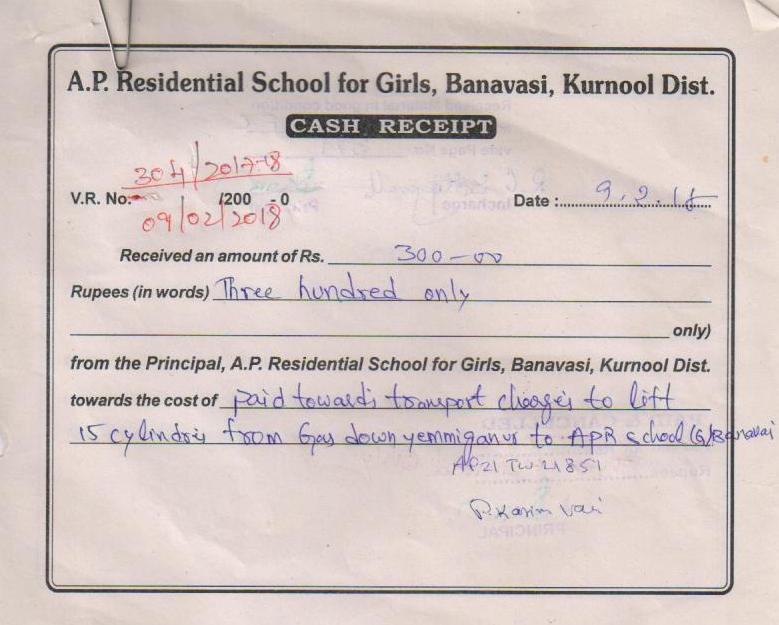 A.P. Residential School for Girls, Banavasi, Kurnool Dist.
CASH RECEIPT
304/2017-18
V.R. No: /200 -0 Date : 9.2.18
09/02/2018
Received an amount of Rs. 300-00
Rupees (in words) Three hundred only
only)
from the Principal, A.P. Residential School for Girls, Banavasi, Kurnool Dist.
towards the cost of paid towards transport charges to lift
15 cylindrs from Gas down yemmiganur to APR School (G) Banavai
AP21 TW